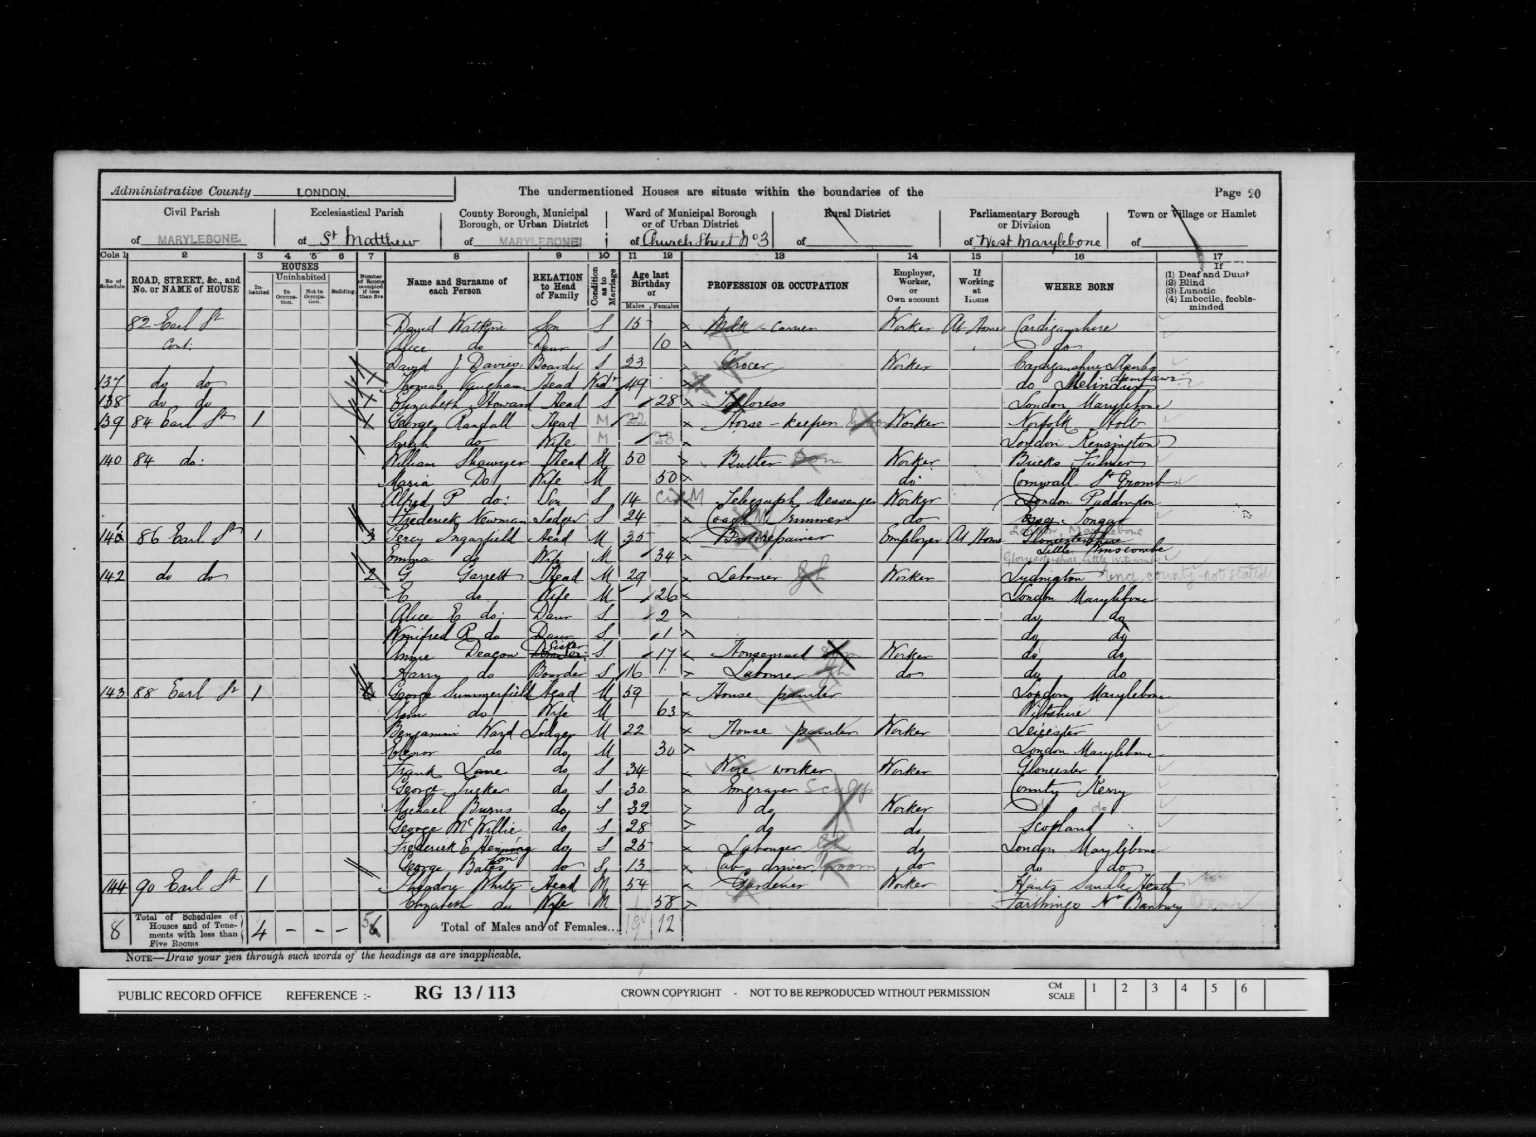 Administrative County LONDON
The undermentioned Houses are situate within the boundaries of the
Page 20
Civil Parish of MARYLEBONE
Ecclesiastical Parish of St Matthew
County Borough, Municipal Borough, or Urban District of MARYLEBONE
Ward of Municipal Borough or of Urban District of Church Street No 3
Rural District of
Parliamentary Borough or Division of West Marylebone
Town or Village or Hamlet of
Cols 1 2 3 4 5 6 7 8 9 10 11 12 13 14 15 16 17
No of Schedule
ROAD, STREET, &c., and No. or NAME of HOUSE
HOUSES
Inhabited
Uninhabited
In Occupation.
Not in Occupation.
Building.
Number of Rooms occupied if less than five
Name and Surname of each Person
RELATION to Head of Family
Condition as to Marriage
Age last Birthday of
Males Females
PROFESSION OR OCCUPATION
Employer, Worker, or Own account
If Working at Home
WHERE BORN
If (1) Deaf and Dumb (2) Blind (3) Lunatic (4) Imbecile, feeble-minded
82 Earl St David Son S 15 Milk Carrier Worker At Home Cardiganshire
Cont. Alice do Daur S 10 do
David J Davies Boarder S 23 Grocer Worker Cardiganshire
137 do do Thomas Vaughan Head Widr 49 do
138 do do Elizabeth Howard Head S 28 London Marylebone
139 84 Earl St 1 George Randall Head M Horse-keeper Worker Norfolk Holt
Sarah do Wife M London Kensington
140 84 do William Head M 50 Butler Worker Bucks Fulmer
Maria Do Wife M 50 do Cornwall
Alfred P do Son S 14 Telegraph Messenger Worker London Paddington
Frederick Newman Lodger S 24 Coach Trimmer do Ongar
86 Earl St 1 3 Percy Ingarfield Head M 35 Employer At Home Gloucestershire
Emma do Wife M 34
142 do do 2 G Garrett Head M 29 Labourer Worker county not stated
E do Wife M 26 London Marylebone
Alice E do Daur S 2 do do
Winifred R do Daur S 1 do do
Annie Deacon Sister S 17 Housemaid Worker do do
Harry do Boarder S 16 Labourer do do do
143 88 Earl St 1 George Summerfield Head M 59 House painter London Marylebone
Ann do Wife M 63 Wiltshire
Benjamin Ward Lodger M 22 House painter Worker Leicester
Elenor do do M 30 London Marylebone
Frank Lane do S 34 Wire worker Worker Gloucester
George Tucker do S 30 Engraver County Kerry
Michael Burns do S 39 do Worker do
George McWillie do S 28 do do Scotland
Frederick E Henning do S 25 Labourer do London Marylebone
George Bates do S 13 Cab driver do do do
144 90 Earl St 1 White Head M 54 Gardener Worker Hants Heath
Elizabeth do Wife M 58 Nr Banbury
8 Total of Schedules of Houses and of Tenements with less than Five Rooms 4 - - - Total of Males and of Females... 19 12
NOTE—Draw your pen through such words of the headings as are inapplicable.
PUBLIC RECORD OFFICE REFERENCE :- RG 13/113 CROWN COPYRIGHT - NOT TO BE REPRODUCED WITHOUT PERMISSION CM SCALE 1 2 3 4 5 6